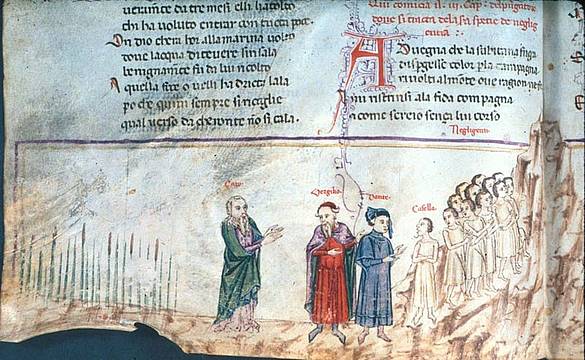 da tre mesi elli ha tolto
chi ha uoluto entrar con tucta pace.
Ondio chem hor alla marina uolto
doue lacqua di teuere sin sala
fu da lui ricolto
A quella o uelli ha dricta lala
po che quiui sempre si ricoglie
qual uerso da cheronte no si cala.
Qui comicia il .iii. Cap. del
doue si dela spetie de neglig
entia.
Aduegna che la subitana fuga
color pla campagna
riuolti al mote oue ragion
I mi ristrinsi ala fida compagna
a come sereio sença lui corso
Negligenti
Cato
Vergilio
Dante
Casella